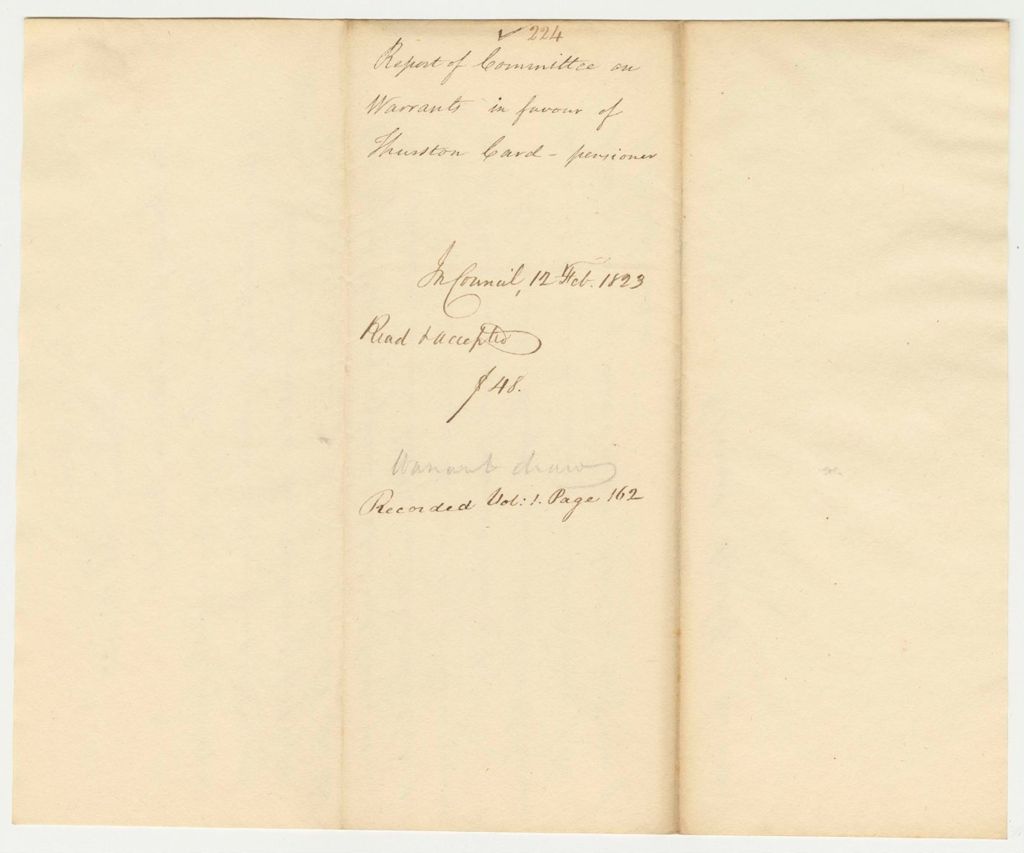 ✓ 224
Report of Committee on
Warrants in favour of
Thurston Card - pensioner
In Council, 12 Feb. 1823
Read & accepted
$48.
Warrant drawn
Recorded Vol: 1. Page 162